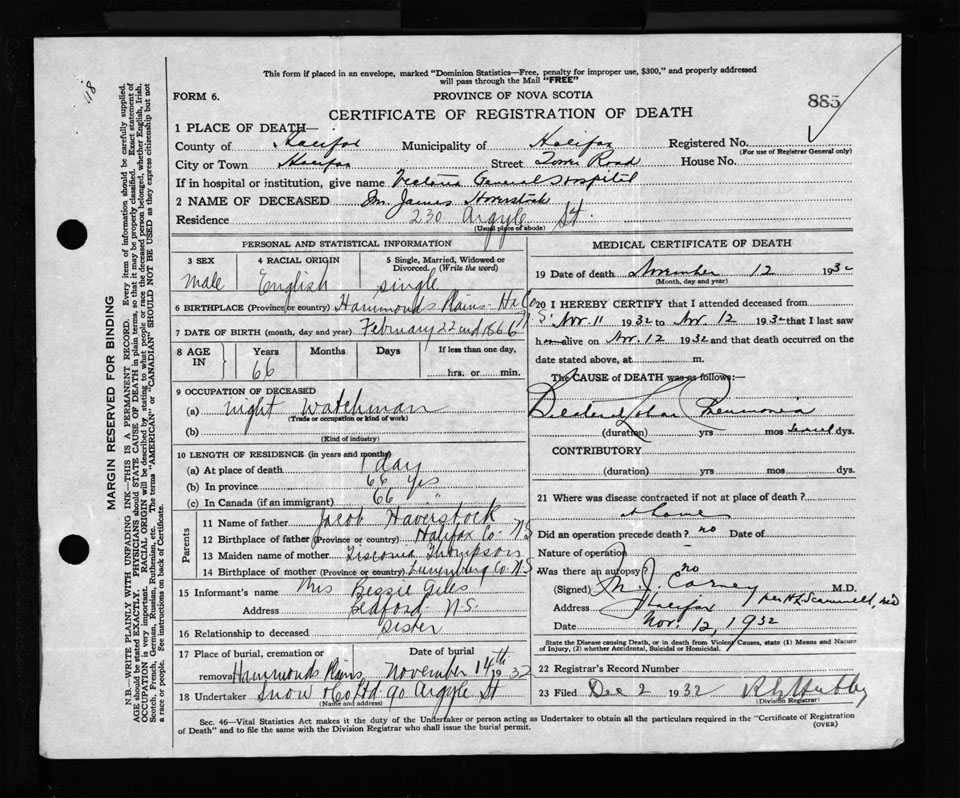 This form if placed in an envelope, marked "Dominion Statistics—Free, penalty for improper use, $300," and properly addressed
will pass through the Mail "FREE"
118
FORM 6.
PROVINCE OF NOVA SCOTIA
885
CERTIFICATE OF REGISTRATION OF DEATH
1 PLACE OF DEATH—
County of Halifax Municipality of Halifax Registered No.
(For use of Registrar General only)
City or Town Halifax Street Tower Road House No.
If in hospital or institution, give name Victoria General Hospital
2 NAME OF DECEASED Wm. James Haverstock
Residence 230 Argyle St.
(Usual place of abode)
PERSONAL AND STATISTICAL INFORMATION
3 SEX
Male
4 RACIAL ORIGIN
English
5 Single, Married, Widowed or
Divorced. (Write the word)
single
6 BIRTHPLACE (Province or country) Hammonds Plains Hx Co N.S.
7 DATE OF BIRTH (month, day and year) February 22nd 1866
8 AGE IN
Years Months Days If less than one day,
66 hrs. or min.
9 OCCUPATION OF DECEASED
(a) night Watchman
(Trade or occupation or kind of work)
(b)
(Kind of industry)
10 LENGTH OF RESIDENCE (in years and months)
(a) At place of death 1 day
(b) In province 66 yrs
(c) In Canada (if an immigrant) 66 "
Parents
11 Name of father Jacob Haverstock
12 Birthplace of father (Province or country) Halifax Co. N.S
13 Maiden name of mother Thompson
14 Birthplace of mother (Province or country) Lunenburg Co. N.S
15 Informant's name Mrs Bessie Giles
Address Bedford N.S.
16 Relationship to deceased sister
17 Place of burial, cremation or removal Hammonds Plains
Date of burial
November 14th 1932
18 Undertaker Snow & Co Ltd 90 Argyle St
(Name and address)
MEDICAL CERTIFICATE OF DEATH
19 Date of death November 12 1932
(Month, day and year)
20 I HEREBY CERTIFY that I attended deceased from
Nov. 11 1932 to Nov. 12 1932 that I last saw
h alive on Nov. 12 1932 and that death occurred on the
date stated above, at m.
The CAUSE of DEATH was as follows:—
Pneumonia
(duration) yrs mos dys.
CONTRIBUTORY
(duration) yrs. mos. dys.
21 Where was disease contracted if not at place of death?
at home
Did an operation precede death? no Date of
Nature of operation
Was there an autopsy? no
(Signed) M.J. Carney M.D.
Address Halifax
Date Nov. 12, 1932
State the Disease causing Death, or in death from Violent Causes, state (1) Means and Nature
of Injury, (2) whether Accidental, Suicidal or Homicidal.
22 Registrar's Record Number
23 Filed Dec 2 1932
(Division Registrar)
Sec. 46—Vital Statistics Act makes it the duty of the Undertaker or person acting as Undertaker to obtain all the particulars required in the "Certificate of Registration
of Death" and to file the same with the Division Registrar who shall issue the burial permit.
(OVER)
MARGIN RESERVED FOR BINDING
N.B.—WRITE PLAINLY WITH UNFADING INK—THIS IS A PERMANENT RECORD. Every item of information should be carefully supplied.
AGE should be stated EXACTLY. PHYSICIANS should STATE CAUSE OF DEATH in plain terms, so that it may be properly classified. Exact statement of
OCCUPATION is very important. RACIAL ORIGIN will be described by stating to what people or race the deceased person belonged, whether English, Irish,
Scotch, French, German, Russian, Ruthenian, etc. The terms "AMERICAN" or "CANADIAN" SHOULD NOT BE USED as they express citizenship but not
a race or people. See instructions on back of Certificate.